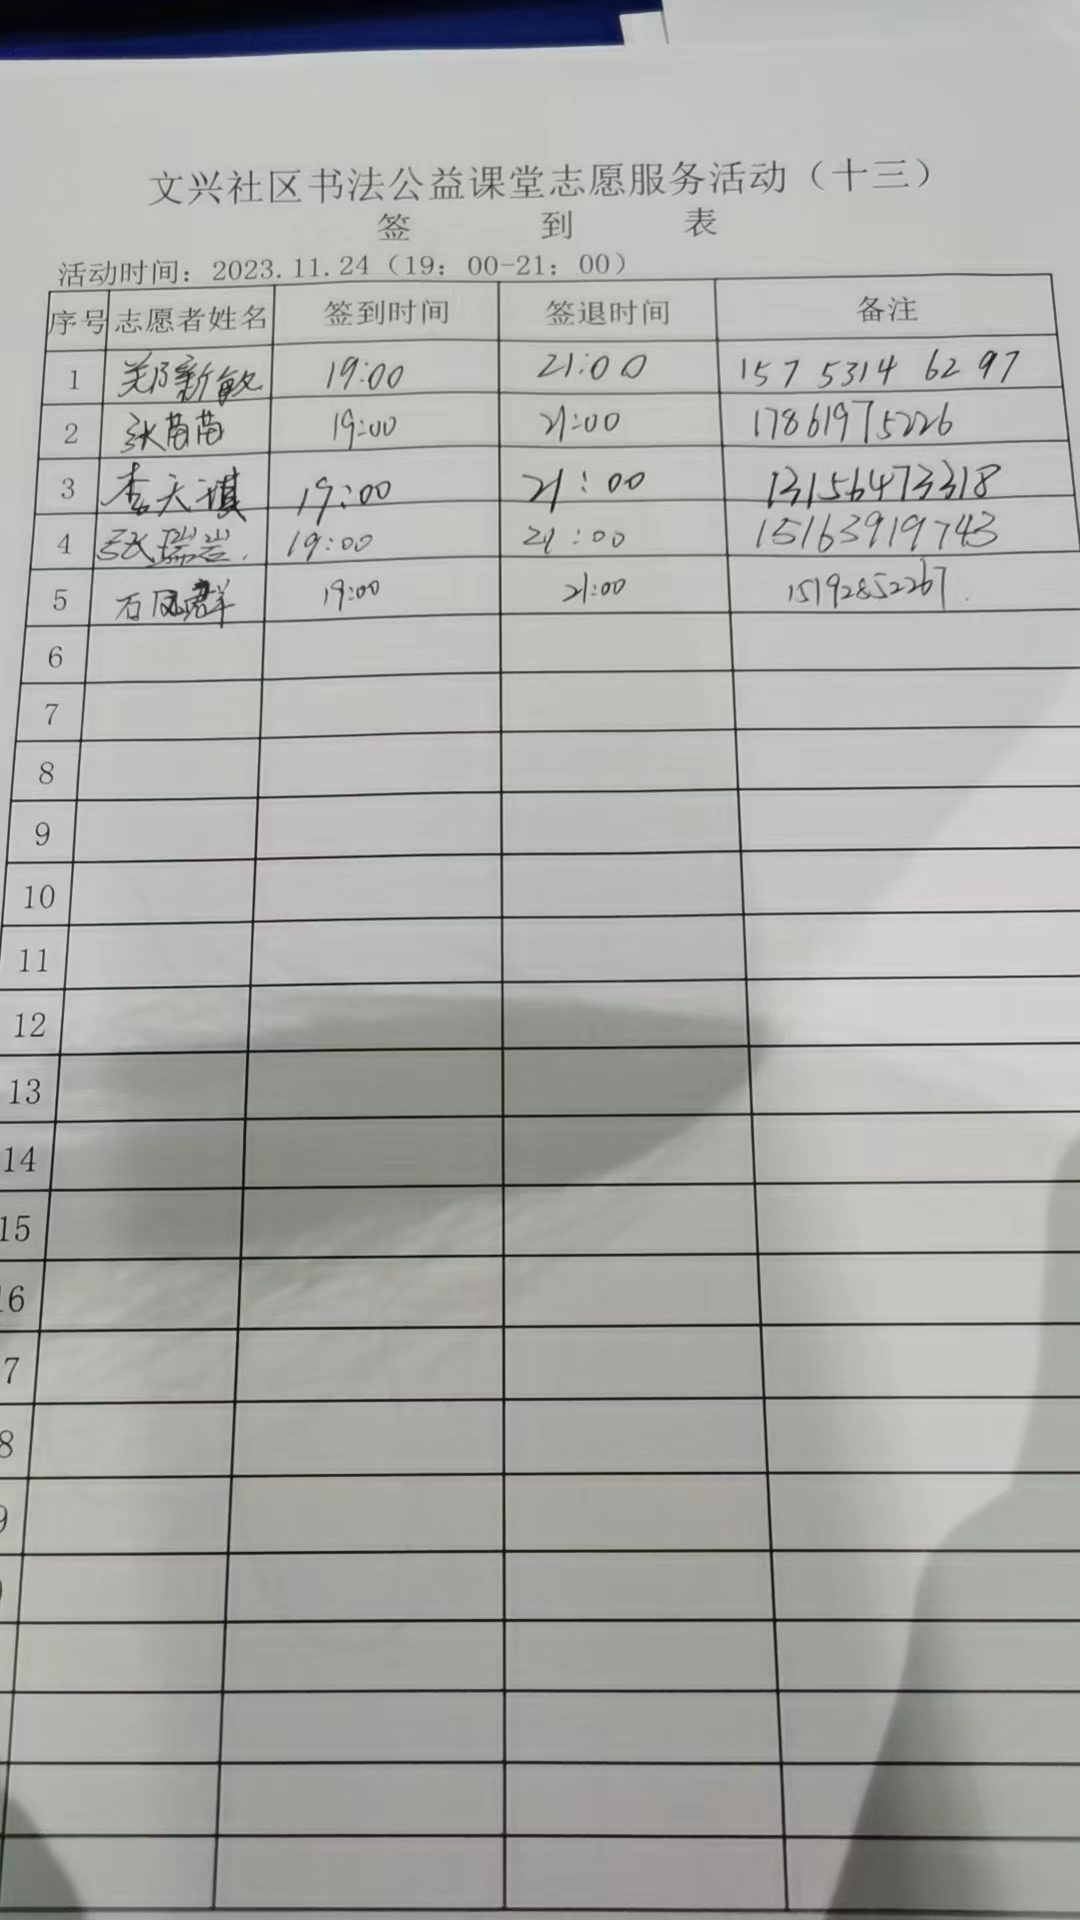 文兴社区书法公益课堂志愿服务活动（十三）
签 到 表
活动时间：2023.11.24（19：00-21：00）
序号 志愿者姓名 签到时间 签退时间 备注
1 郑新敏 19:00 21:00 157 5314 6297
2 张苗苗 19:00 21:00 17861975226
3 李天琪 19:00 21:00 13156473318
4 张瑞岩. 19:00 21:00 15163919743
5 石凤群 19:00 21:00 15192852267.
6
7
8
9
10
11
12
13
14
15
16
7
8
9